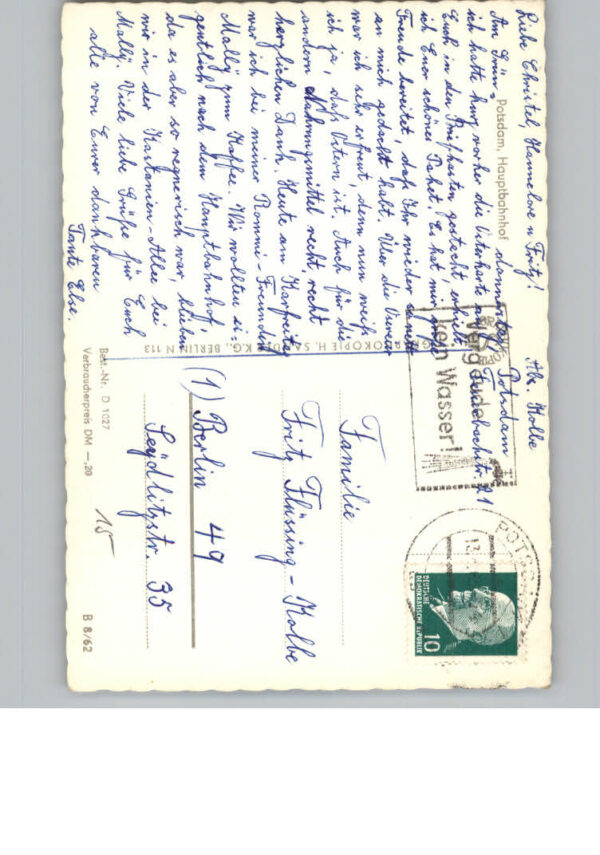 Liebe Christel, Hannelore u. Fritz!
Am Grün-
ich hatte kurz vorher die Osterkarte an
Euch in den Briefkasten gesteckt, erhielt
ich Euer schönes Paket. Es hat mir
Freude bereitet, daß Ihr wieder so nett
an mich gedacht habt. Über die
war ich sehr erfreut, denn nun weiß
ich ja, daß Ostern ist. Auch für die
andern Nahrungsmittel recht, recht
herzlichen Dank. Heute am Karfreitag
war ich bei meiner Rommé-Freundin
Mally zum Kaffee. Wir wollten ei-
gentlich nach dem Hauptbahnhof,
da es aber so regnerisch war, blieben
wir in der Kastanien-Allee bei
Mally. Viele liebe Grüße für Euch
alle von Eurer dankbaren
Tante Else.
Potsdam, Hauptbahnhof
Abs. Kolbe
Potsdam
Feuerbachstr. 21
Vergeude
kein Wasser!
POTSDAM
13.
DEUTSCHE
DEMOKRATISCHE REPUBLIK
10
Familie
Fritz Flüssing-Kolbe
(1) Berlin 49
Seydlitzstr. 35
K.G., BERLIN N 113
Best.-Nr. D 1027
Verbraucherpreis DM —,20
15
B 8/62